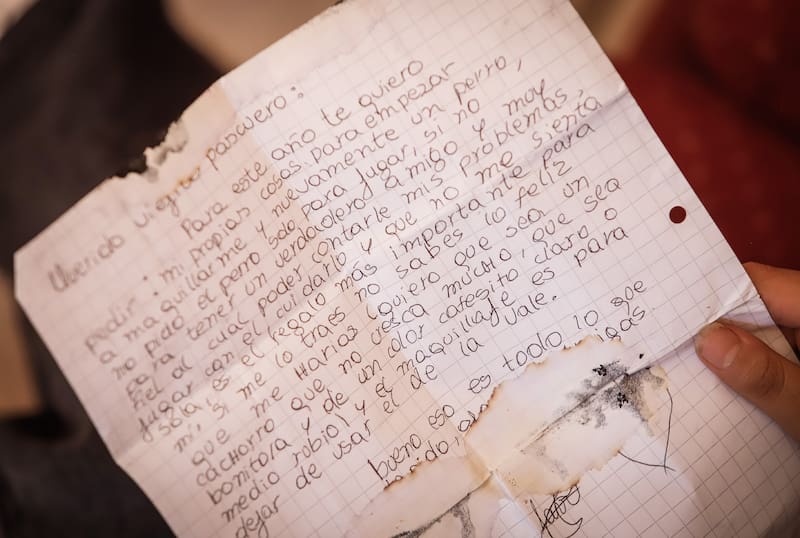 Querido viegito pascuero:
Para este año te quiero
pedir: mi propias cosas para empezar
a maquillarme y nuevamente un perro,
no pido el perro solo para jugar, si no
para tener un verdadero amigo y muy
fiel al cual poder contarle mis problemas,
jugar con el cuidarlo y que no me sienta
sola, es el regalo más importante para
mi, si me lo traes no sabes lo feliz
que me harias quiero que sea un
cachorro que no cresca mucho, que sea
bonito/a y de un color cafesito claro o
medio rubio! y el maquillaje es para
dejar de usar el de la Vale.
bueno eso es todo lo que